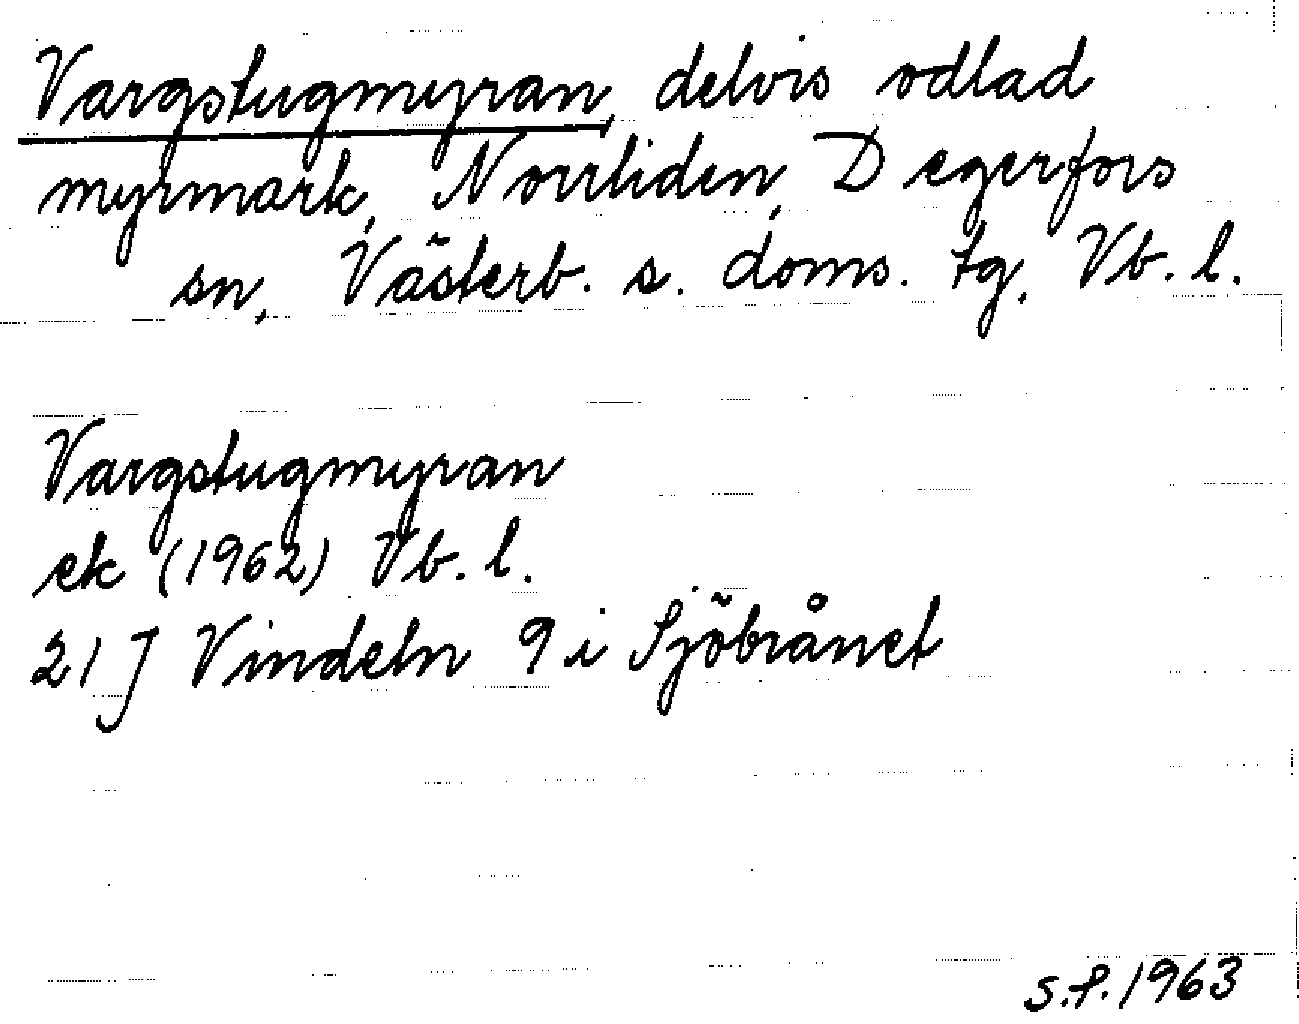 Vargstugmyran, delvis odlad
myrmark, Norrliden, Degerfors
sn, Västerb. s. doms. tg, Vb. l.
Vargstugmyran
ek (1962) Vb. l.
21 J Vindeln 9 i Sjöbrånet
s.f. 1963